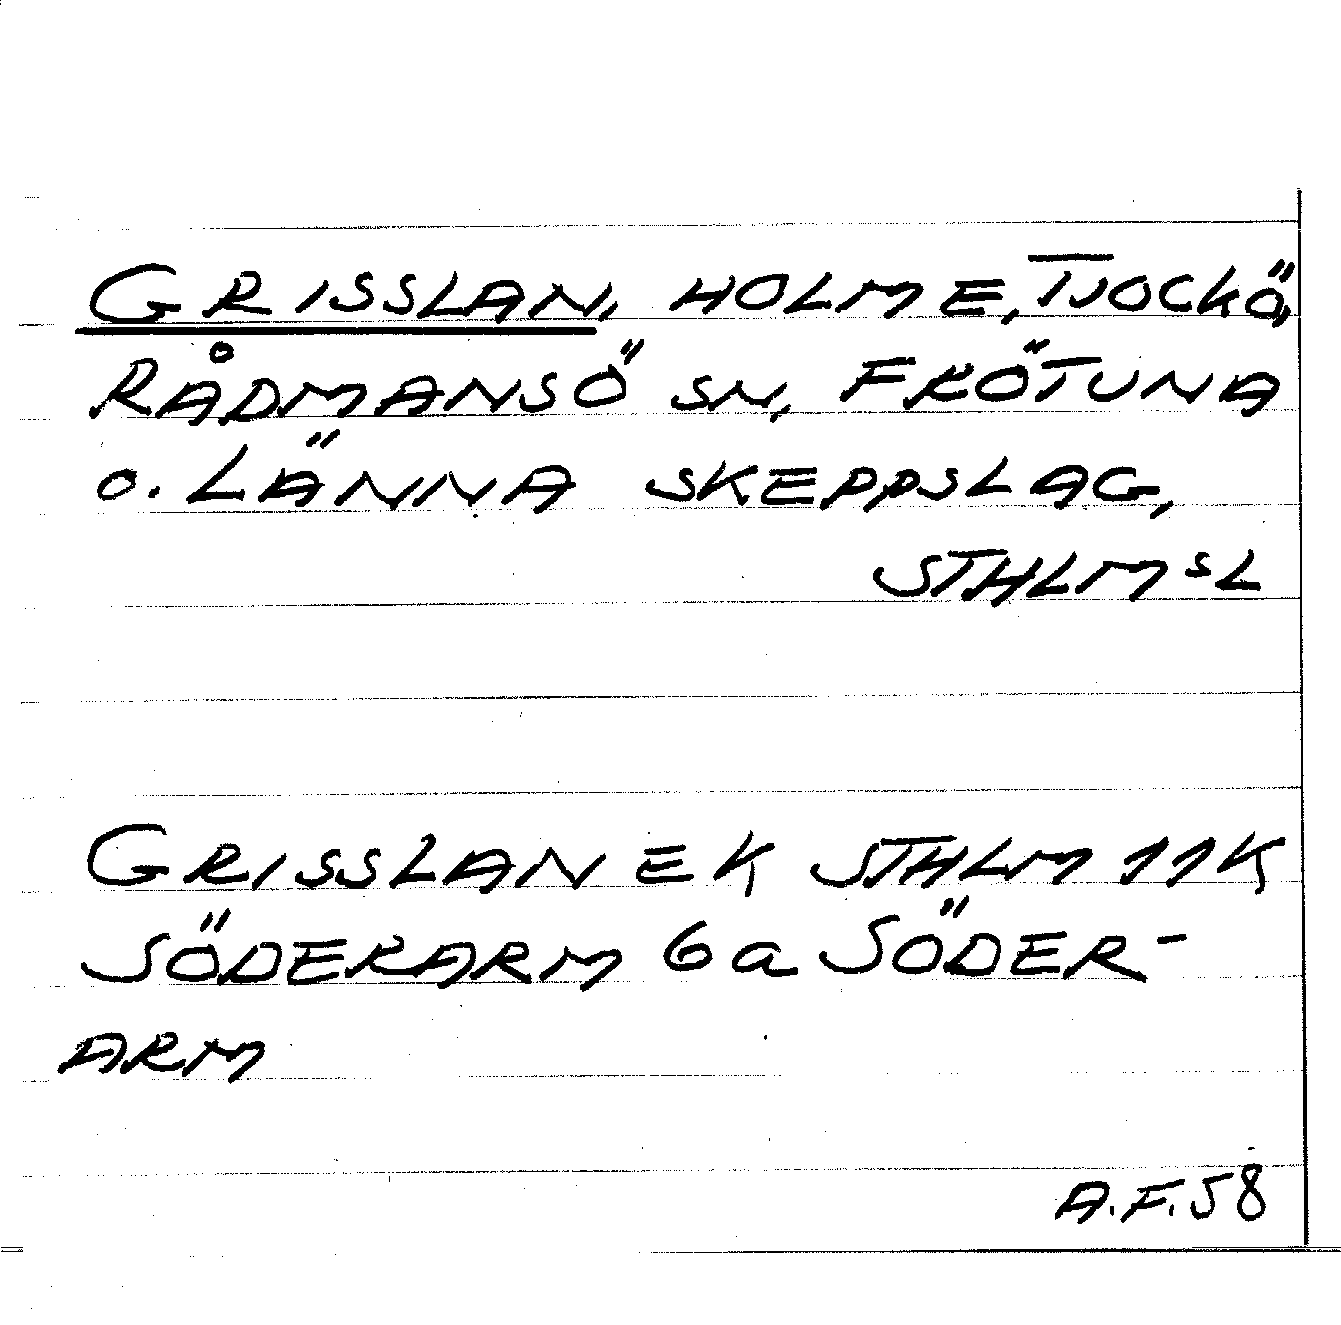 GRISSLAN, HOLME, TJOCKÖ,
RÅDMANSÖ SN, FRÖTUNA
O. LÄNNA SKEPPSLAG,
STHLMSL
GRISSLAN EK STHLM 11K
SÖDERARM 6a SÖDER-
ARM
A.F.58